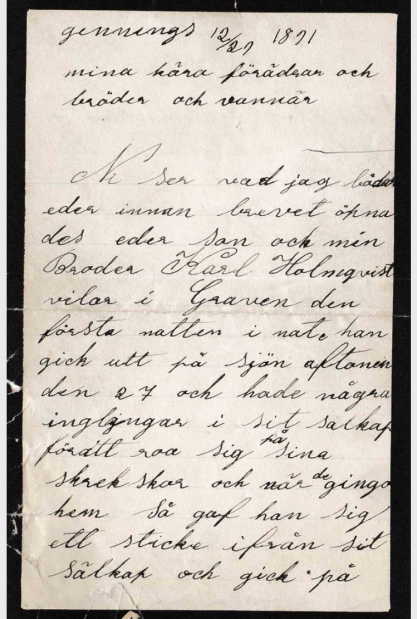 gennings 12/29 1891
mina kära förädrar och
bröder och vannär
Ni ser vad jag
eder innan brevet öpna
des eder son och min
Broder Karl Holmqvist
vilar i Graven den
första natten i nat, han
gick utt på sjön aftonen
den 27 och hade några
inglingar i sit salkap
förått roa sig på sina
skrek skor och när de gingo
hem så gaf han sig
ett sticke ifrån sit
sälkap och gick på